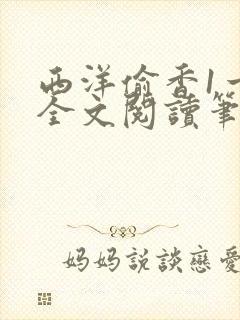 西洋偷香1一
全文閱讀筆
妈妈説談戀愛